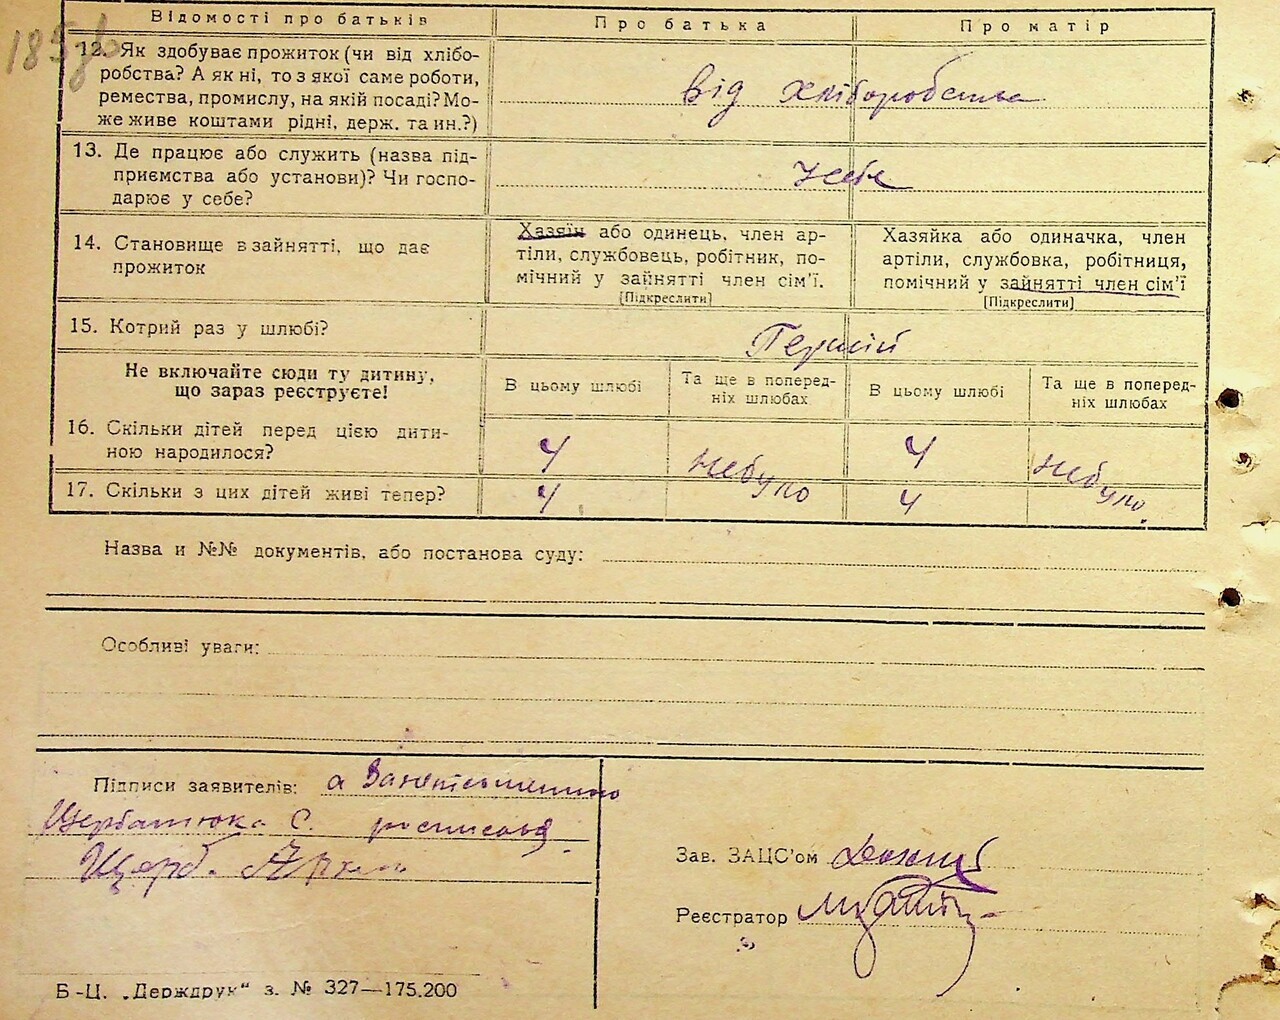 185зв
Відомості про батьків
Про батька
Про матір
12. Як здобуває прожиток (чи від хлібо-
робства? А як ні, то з якої саме роботи,
ремества, промислу, на якій посаді? Мо-
же живе коштами рідні, держ. та ин.?)
Від хліборобства
13. Де працює або служить (назва під-
приємства або установи)? Чи госпо-
дарює у себе?
У себе
14. Становище в зайнятті, що дає
прожиток
Хазяїн або одинець, член ар-
тіли, службовець, робітник, по-
мічний у зайнятті член сім'ї.
[Підкреслити]
Хазяйка або одиначка, член
артіли, службовка, робітниця,
помічний у зайнятті член сім'ї
[Підкреслити]
15. Котрий раз у шлюбі?
Первий
Не включайте сюди ту дитину,
що зараз реєструєте!
В цьому шлюбі
Та ще в поперед-
ніх шлюбах
В цьому шлюбі
Та ще в поперед-
ніх шлюбах
16. Скільки дітей перед цією дити-
ною народилося?
4
небуло
4
небуло
17. Скільки з цих дітей живі тепер?
4
4
Назва и №№ документів, або постанова суду:
Особливі уваги:
Підписи заявителів: а
Щербатюка С. росписовся
Щерб.
Зав. ЗАЦС'ом
Реєстратор
Б-Ц. „Держдрук" з. № 327—175.200